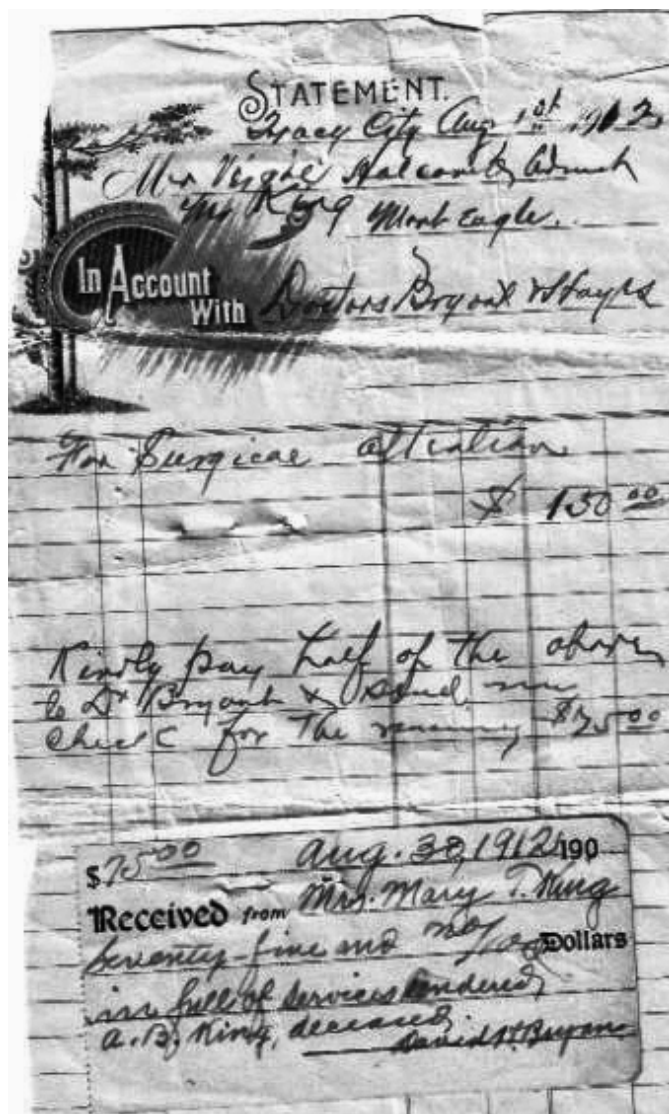 STATEMENT.
Tracy City Aug 1st 1912
Mr Virgil Holcomb Admr
King Mont Eagle.
In Account
With Doctors Bryant & Hayes
For Surgical attention
$ 150 00
Kindly pay half of the above
to Dr Bryant & send me
check for the remaining $75 00
$75 00 Aug. 30, 1912 190
Received from Mrs. Mary T. King
Seventy-five and no/100 Dollars
in full of services rendered
A. B. King, deceased,
David H. Bryant